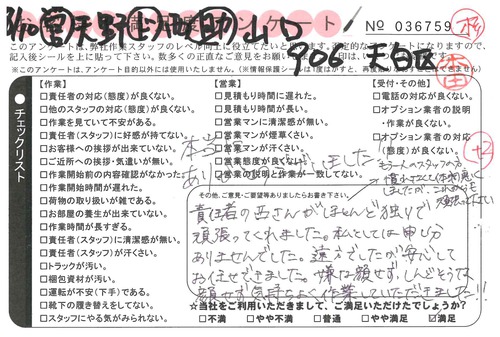 加営天野 山口
アンケート
№ 036759
906 天白区
このアンケートは、弊社作業スタッフのレベル向上に役立てたいと
記入後シールを上に貼って下さい。数多くの正直なご意見をお願い
※このアンケートは、アンケート目的以外には使用いたしません。
チェックリスト
【作業】
□責任者の対応(態度)が良くない。
□他のスタッフの対応(態度)が良くない。
□作業を見ていて不安がある。
□責任者(スタッフ)に好感が持てない。
□お客様への挨拶が出来ていない。
□ご近所への挨拶・気遣いが無い。
□作業開始前の内容確認がなかった
□作業開始時間が遅れた。
□荷物の取り扱いが雑である。
□お部屋の養生が出来ていない。
□作業時間が長すぎる。
□責任者(スタッフ)に清潔感が無い。
□責任者(スタッフ)が汗くさい。
□トラックが汚い。
□梱包資材が汚い。
□運転が不安(下手)である。
□靴下の履き替えをしてない。
□スタッフにやる気がみられない。
【営業】
□見積もり時間に遅れた。
□見積もり時間が長い。
□営業マンに清潔感が無い。
□営業マンが煙草くさい。
□営業マンが汗くさい。
□営業態度が良くない。
□営業の説明と作業が一致してない。
【受付・その他】
□電話の対応が良くない。
□オプション業者の説明
・作業が良くない。
□オプション業者の対応
(態度)が良くない。
もう一人のスタッフの方、
その他、ご意見・ご要望等ありましたらお書き下さい。
責任者の西さんがほとんど独りで
頑張ってくれました。私としては申し分
ありませんでした。遠方でしたが安心して
おまかせできました。嫌な顔せず、しんどそうな
顔せず気持ちよく作業していただきました!!
☆当社をご利用いただきまして、ご満足いただけたでしょうか?
□不満 □やや不満 □普通 □やや満足 ☑満足